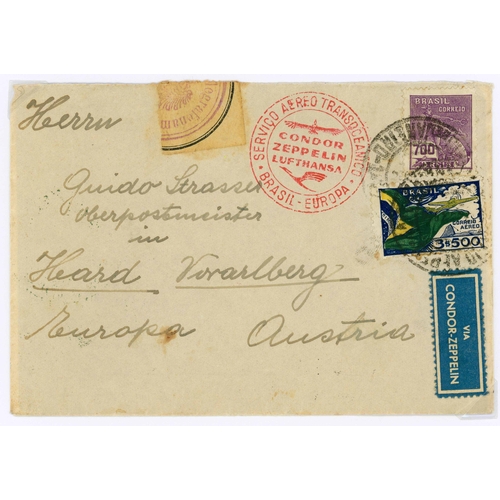 Herrn
SERVIÇO AEREO TRANSOCEANICO
CONDOR
ZEPPELIN
LUFTHANSA
BRASIL - EUROPA
BRASIL
CORREIO
700
Guido Strasser
Oberpostmeister
in
Hard Vorarlberg
Europa Austria
BRASIL
CORREIO
AEREO
3$500
VIA
CONDOR-ZEPPELIN